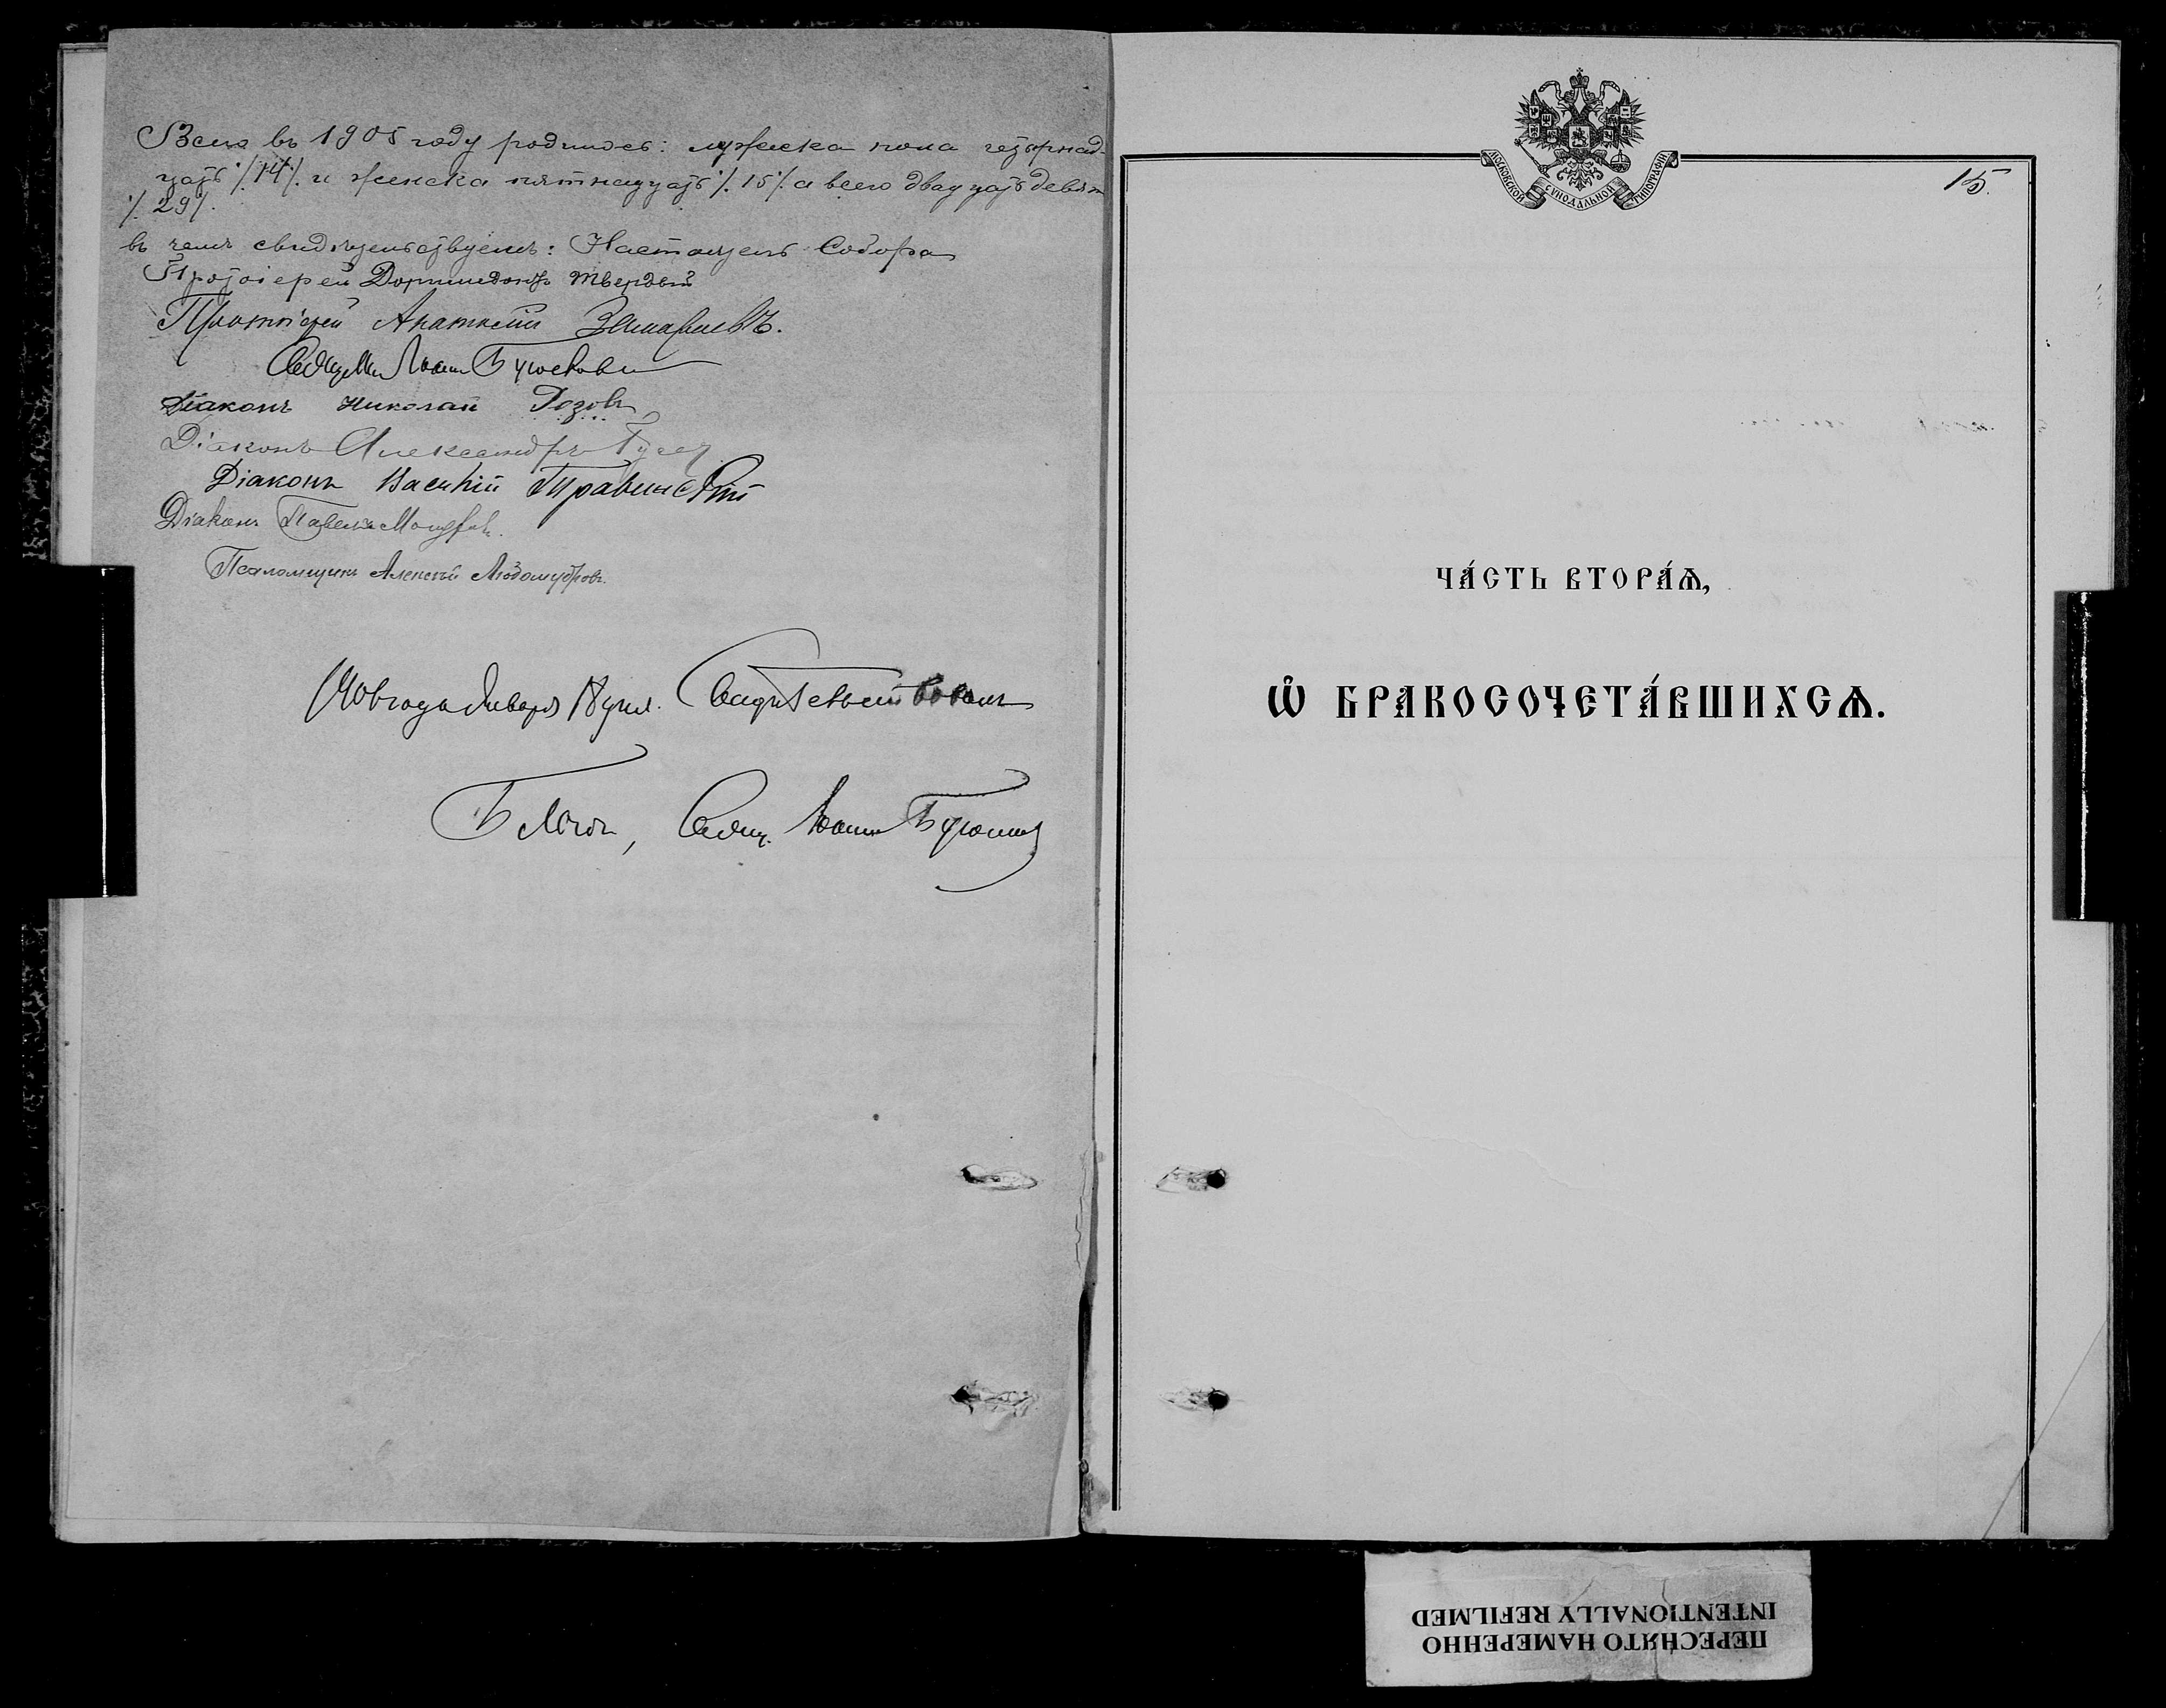 Всего въ 1905 году родилось: мужеска пола четырнад-
цать /14/. и женска пятнадцать /15/ а всего двадцать девять
/29/.
въ чемъ свидѣтельствуемъ: Настоятель Собора
Протоіерей Доримедонтъ Твердый
Протоіерей Анатолій
Священникъ Іоаннъ
Діаконъ Николай Розовъ
Діаконъ Александръ
Діаконъ Василій
Діаконъ Павелъ
Псаломщикъ Алексѣй Любомудровъ.
1906 года Января Свидѣтельствовалъ
Благоч, Свящ. Іоаннъ
МОСКОВСКОЙ СѴНОДАЛЬНОЙ ТИПОГРАФІИ
15.
ЧА́СТЬ ВТОРА́Ѧ,
Ѡ҆ БРАКОСОЧЕТА́ВШИХСѦ.
ПЕРЕСНЯТО НАМЕРЕННО
INTENTIONALLY REFILMED